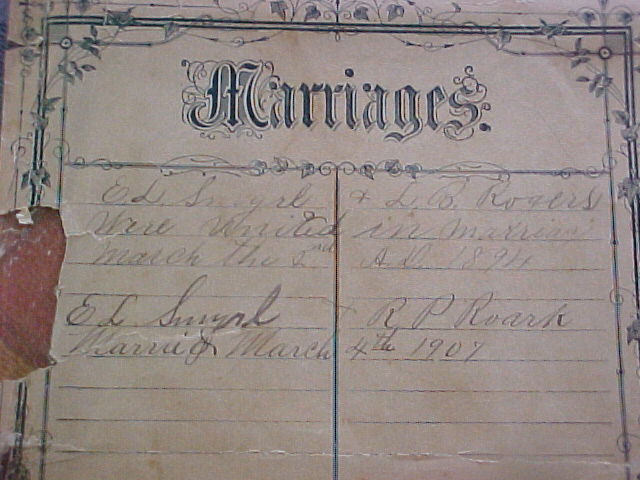 Marriages.
Ed Smyrl & L. B. Rogers
Were United in Marriag
March the 2nd A.D. 1894
Ed Smyrl & R P Roark
Married March 4th 1907